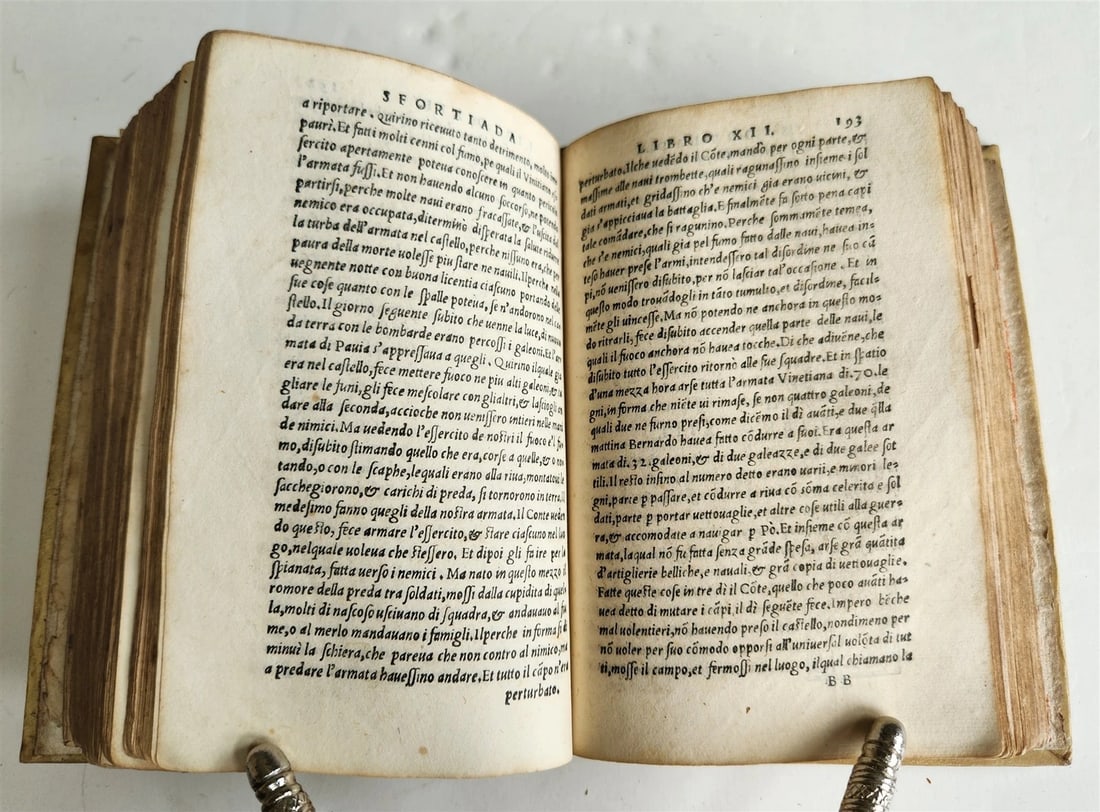 SFORTIADA
a riportare. Quirino riceuuto tanto detrimento, molto
paurì. Et fatti molti cenni col fumo, pe quali il Vinetiano
sercito apertamente poteua conoscere in quanto pericolo
l'armata fussi. Et non hauendo alcuno soccorso, ne potendo
partirsi, perche molte naui erano fracassate, & l'uscita dal
nemico era occupata, diterminò disperata la salute ridurre
la turba dell'armata nel castello, perche nissuno era, che per
paura della morte uolesse piu stare ne nauili. Ilperche nella
uegnente notte con buona licentia ciascuno portando delle
sue cose quanto con le spalle poteua, se n'andorono nel ca
stello. Il giorno seguente subito che uenne la luce, di nuouo
da terra con le bombarde erano percossi i galeoni. Et l'ar
mata di Pauia s'appressaua a quegli. Quirino ilquale già
era nel castello, fece mettere fuoco ne piu alti galeoni, & ta
gliare le funi, gli fece mescolare con glialtri, & lasciogli an
dare alla seconda, accioche non uenissero intieri nelle mani
de nimici. Ma uedendo l'essercito de nostri il fuoco e'l fu
mo, disubito stimando quello che era, corse a quelle, & o
tando, o con le scaphe, lequali erano alla riua, montatoui le
sacchegiorono, & carichi di preda, si tornorono in terra. Il
medesimo fanno quegli della nostra armata. Il Conte ueden
do questo, fece armare l'essercito, & stare ciascuno nel luo
go, nelquale uoleua che stessero. Et dipoi gli faire per la
spianata, fatta uerso i nemici. Ma nato in questo mezzo il
romore della preda tra soldati, mossi dalla cupidita di quel
la, molti di nascoso usciuano di squadra, & andauano al fiu
me, o al merlo mandauano i famigli. Ilperche in forma si di
minuì la schiera, che pareua che non contro al nimico, ma
a predare l'armata hauessino andare. Et tutto il cāpo n'era
perturbato.
LIBRO XII. 193
perturbato. Ilche uedēdo il Cōte, mandò per ogni parte, &
massime alle naui trombette, quali ragunassino insieme i sol
dati armati, et gridassino ch'e nemici gia erano uicini, &
gia s'appicciaua la battaglia. E finalmēte fa sotto pena capi
tale comādare, che si ragunino. Perche sommamēte temea,
che s'e nemici, quali gia pel fumo fatto dalle naui, hauea in=
teso hauer prese l'armi, intendessero tal disordine ne suo cā
pi, nō uenissero disubito, per nō lasciar tal'occasione. Et in
questo modo trouādogli in tāto tumulto, et disordine, facil=
mēte gli uincesse. Ma nō potendo ne anchora in questo mo=
do ritrarli, fece disubito accender quella parte delle naui, le
quali il fuoco anchora nō hauea tocche. Di che adiuēne, che
disubito tutto l'essercito ritornò alle sue squadre. Et in spatio
d'una mezza hora arse tutta l'armata Vinetiana di. 70. le
gni, in forma che niēte ui rimase, se non quattro galeoni, de
quali due ne furno presi, come dicēmo il dì auāti, e due q̄lla
mattina Bernardo hauea fatto cōdurre a suoi. Era questa ar
mata di. 32. galeoni, & di due galeazze, e di due galee sot
tili. Il resto infino al numero detto erano uarii, e minori le=
gni, parte p passare, et cōdurre a riua cō sōma celerita e sol
dati, parte p portar uettouaglie, et altre cose utili alla guer=
ra, & accomodate a nauigar p Pò. Et insieme cō questa ar
mata, laqual nō fu fatta senza grāde spesa, arse grā quātita
d'artiglierie belliche, e nauali, & grā copia di uettouaglie.
Fatte queste cose in tre di il Cōte, quello che poco auāti ha=
uea detto di mutare i cāpi, il di seguēte fece. Impero bēche
mal uolentieri, nō hauendo preso il castello, nondimeno per
nō uoler per suo cōmodo opporsi all'uniuersal uolōta di tut
ti, mosse il campo, et fermossi nel luogo, ilqual chiamano la
BB